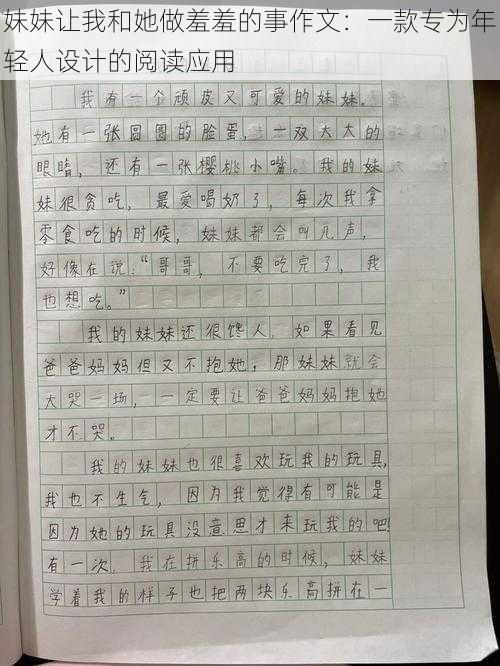 妹妹让我和她做羞羞的事作文：一款专为年
轻人设计的阅读应用
我有一个顽皮又可爱的妹妹.
她有一张圆圆的脸蛋，一双大大的
眼睛，还有一张樱桃小嘴。我的妹
妹很贪吃，最爱喝奶了，每次我拿
零食吃的时候，妹妹都会叫几声，
好像在说:“哥哥，不要吃完了，我
也想吃。”
我的妹妹还很馋人，如果看见
爸爸妈妈但又不抱她，那妹妹就会
大哭一场，一定要让爸爸妈妈抱她
才不哭。
我的妹妹也很喜欢玩我的玩具，
我也不生气，因为我觉得有可能是
因为她的玩具没意思才来玩我的吧!
有一次，我在拼乐高的时候，妹妹
学着我的样子也把两块乐高拼在一